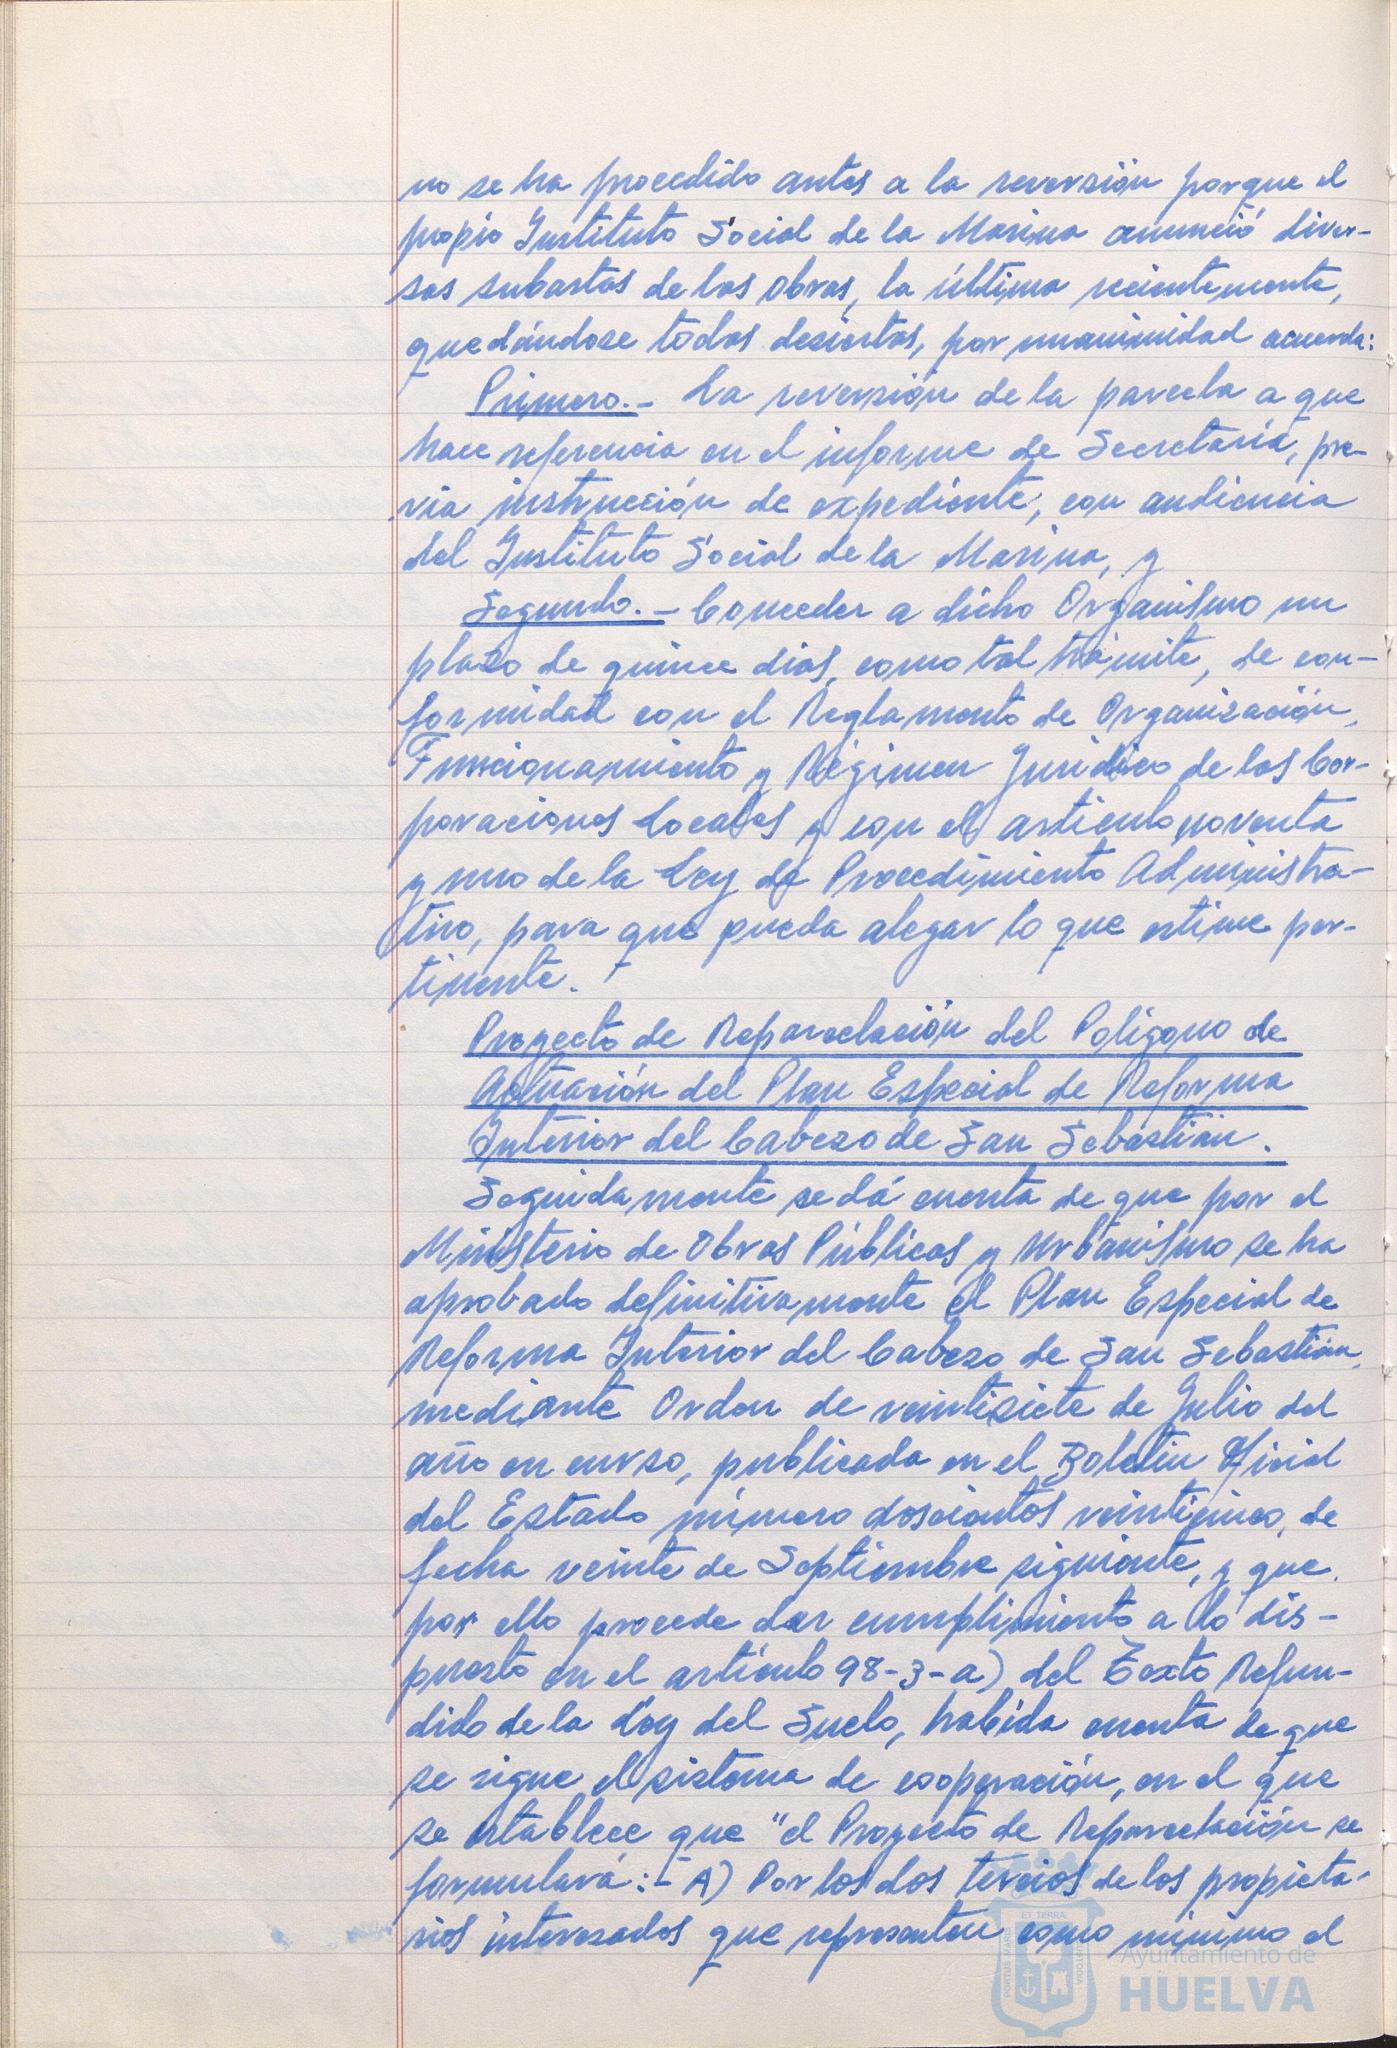 no se ha procedido antes a la reversión porque el
propio Instituto Social de la Marina anunció diver-
sas subastas de las obras, la última recientemente,
quedándose todas desiertas, por unanimidad acuerda:
Primero.- La reversión de la parcela a que
hace referencia en el informe de Secretaría, pre-
via instrucción de expediente, con audiencia
del Instituto Social de la Marina, y
Segundo.- Conceder a dicho Organismo un
plazo de quince dias, como tal trámite, de con-
formidad con el Reglamento de Organización,
Funcionamiento y Régimen Jurídico de las Cor-
poraciones Locales y con el artículo noventa
y uno de la Ley de Procedimiento Administra-
tivo, para que pueda alegar lo que estime per-
tinente.
Proyecto de Reparcelación del Polígono de
Actuación del Plan Especial de Reforma
Interior del Cabezo de San Sebastián.
Seguidamente se dá cuenta de que por el
Ministerio de Obras Públicas y Urbanismo se ha
aprobado definitivamente el Plan Especial de
Reforma Interior del Cabezo de San Sebastián,
mediante Orden de veintisiete de Julio del
año en curso, publicada en el Boletín Oficial
del Estado número doscientos veinticinco, de
fecha veinte de Septiembre siguiente, y que
por ello procede dar cumplimiento a lo dis-
puesto en el artículo 98-3-a) del Texto Refun-
dido de la Ley del Suelo, habida cuenta de que
se sigue el sistema de cooperación, en el que
se establece que "el Proyecto de Reparcelación se
formulará:- A) Por los dos tercios de los propieta-
rios interesados que representen como mínimo el
ET TERRAE
PORTUS MARIS
CUSTODIA
Ayuntamiento de
HUELVA